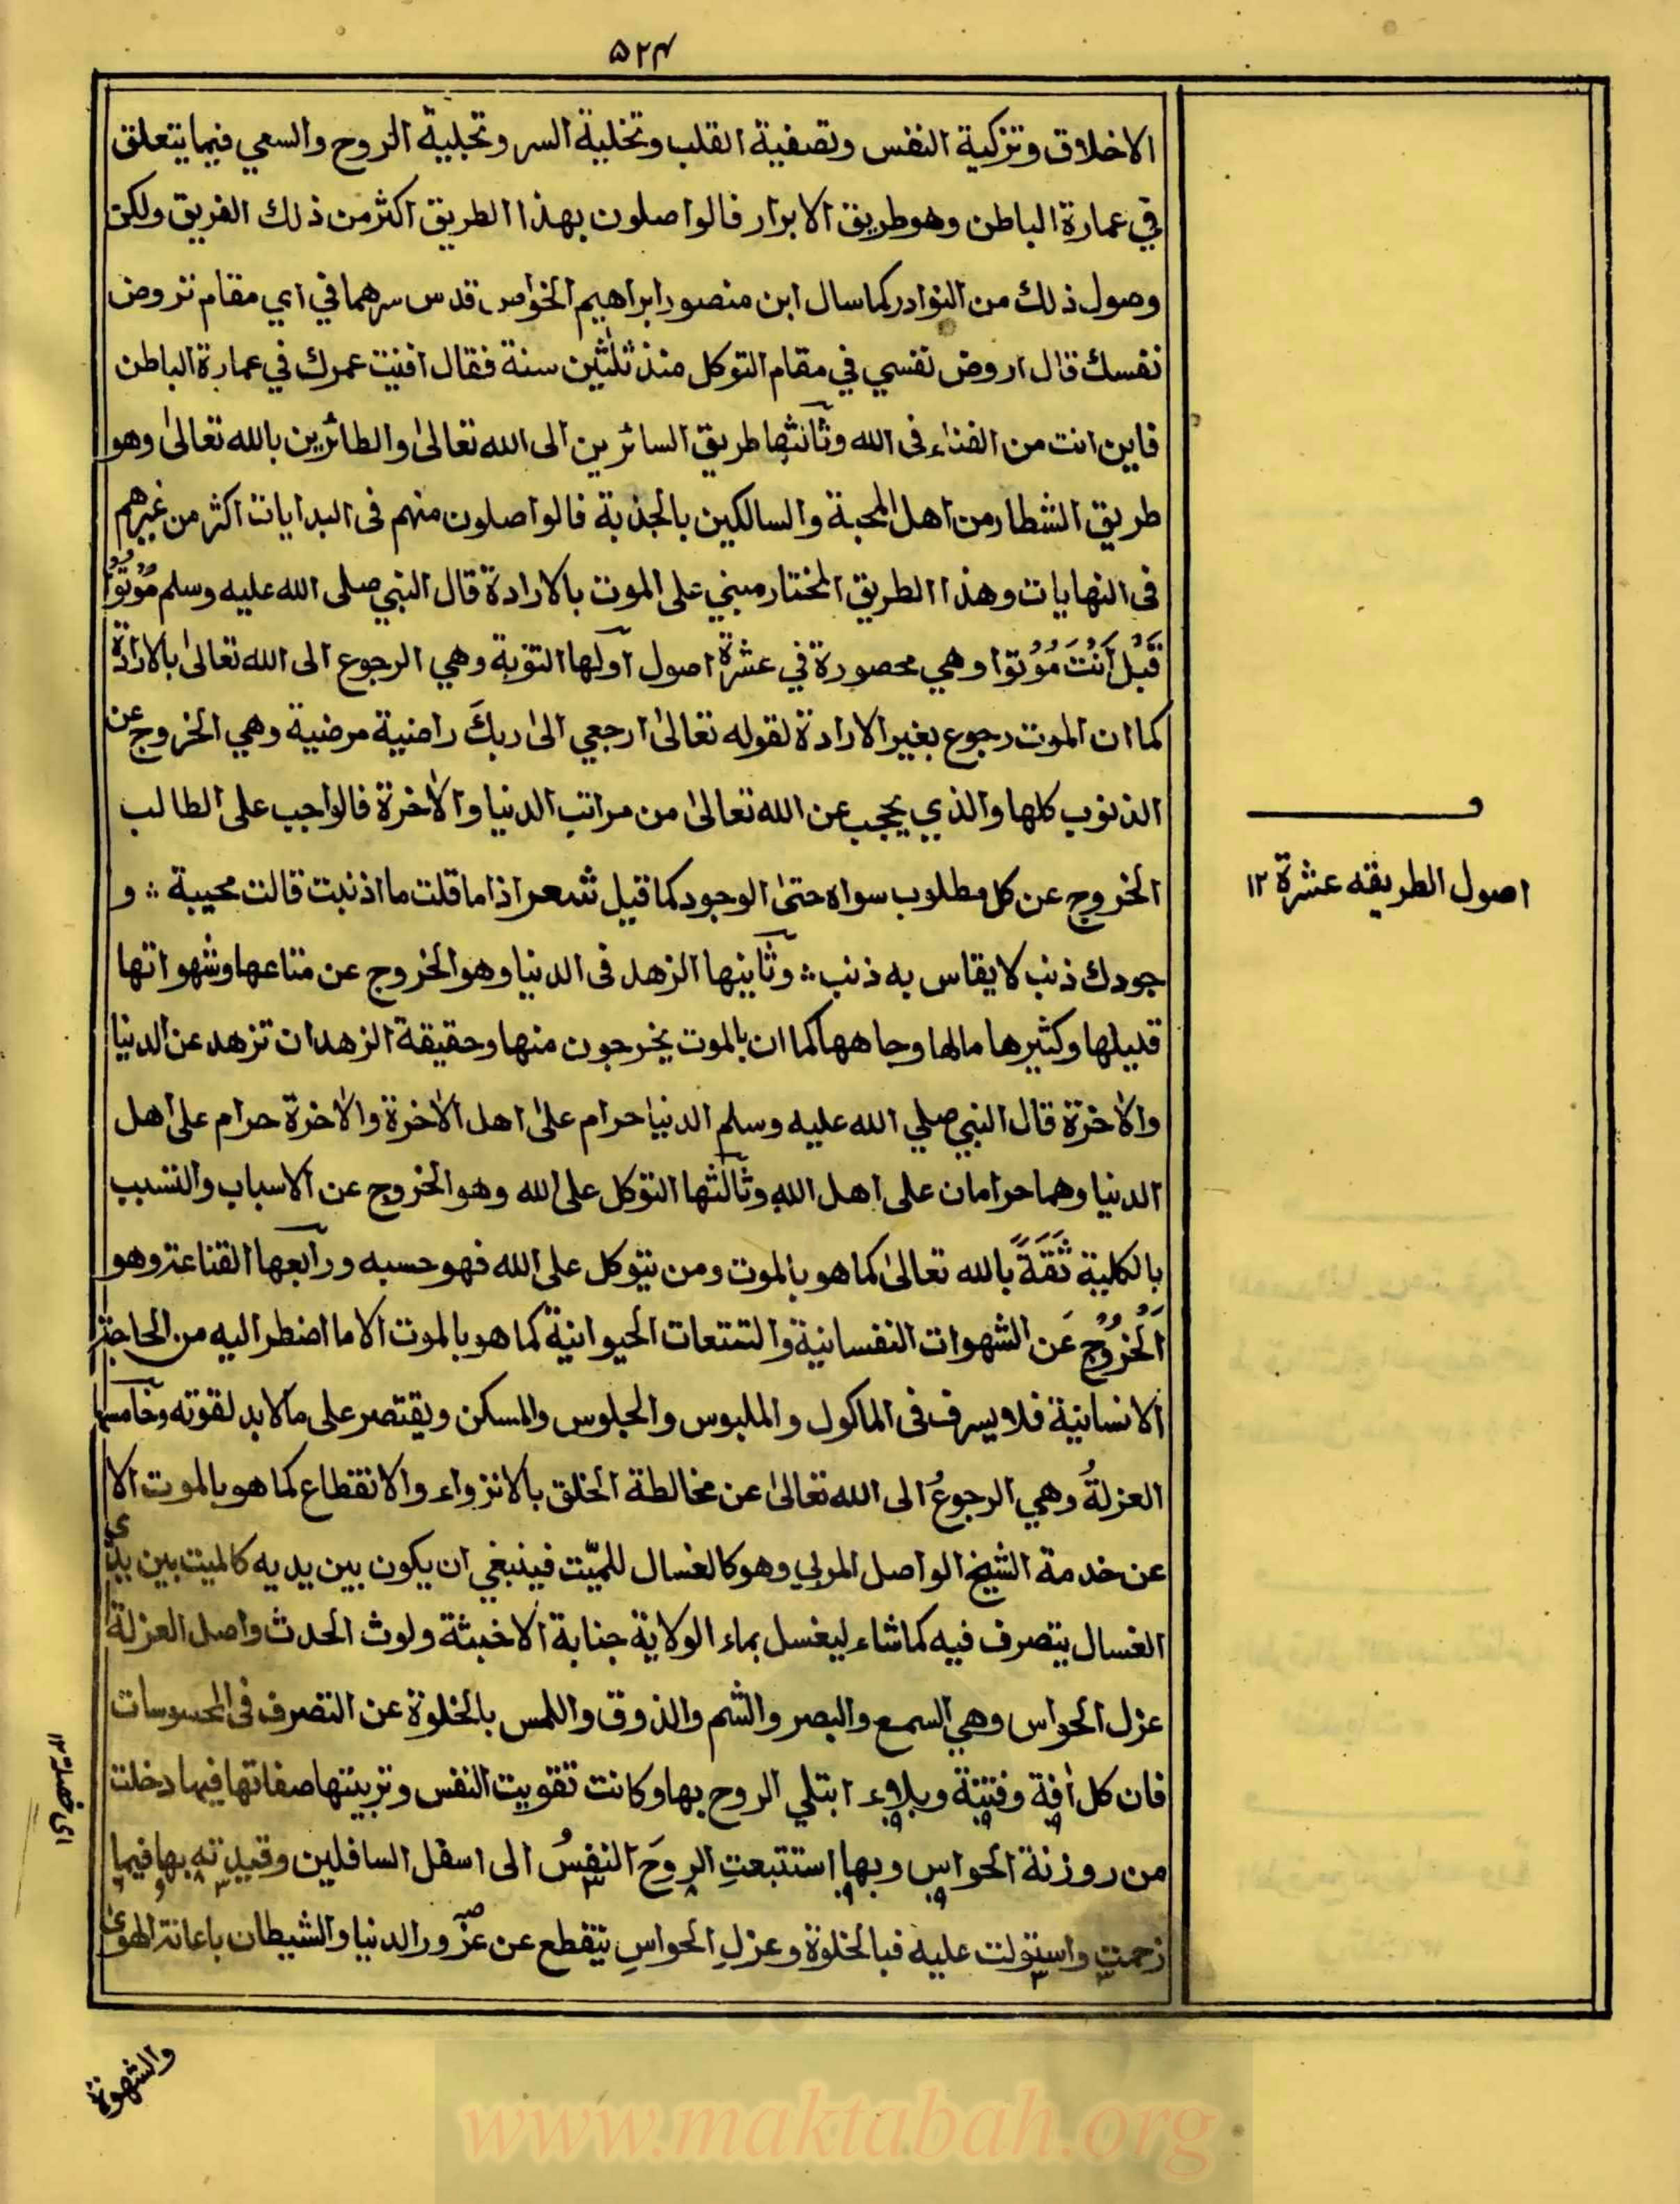 ۵۲۴
الاخلاق وتزكية النفس وتصفية القلب وتخلية السر وتجلية الروح والسعي فيما يتعلق
في عمارة الباطن وهو طريق الابرار فالواصلون بهذا الطريق اكثر من ذلك الفريق ولكن
وصول ذلك من النوادر كما سال ابن منصور ابراهيم الخواص قدس سرهما في اي مقام تروض
نفسك قال اروض نفسي في مقام التوكل منذ ثلٰثين سنة فقال افنيت عمرك في عمارة الباطن
فاين انت من الفناء فى الله وثالثها طريق السائرين الى الله تعالىٰ والطائرين بالله تعالىٰ وهو
طريق الشطار من اهل المحبة والسالكين بالجذبة فالواصلون منهم فى البدايات اكثر من غيرهم
فى النهايات وهذا الطريق المختار مبني على الموت بالارادة قال النبي صلى الله عليه وسلم مُوْتُوْا
قَبْلَ اَنْتَ مُوْتُوْا وهي محصورة في عشرة اصول اولها التوبة وهي الرجوع الى الله تعالىٰ بالارادة
كما ان الموت رجوع بغير الارادة لقوله تعالىٰ ارجعي الىٰ ربكَ راضية مرضية وهي الخروج عن
الذنوب كلها والذي يحجب عن الله تعالىٰ من مراتب الدنيا والاٰخرة فالواجب على الطالب
الخروج عن كل مطلوب سواه حتىٰ الوجود كما قيل شعر اذا ما قلت ما اذنبت قالت مجيبة ؞ و
جودك ذنب لا يقاس به ذنب ؞ وثانيها الزهد فى الدنيا وهو الخروج عن متاعها وشهواتها
قليلها وكثيرها مالها وجاهها كما ان بالموت يخرجون منها وحقيقة الزهد ان تزهد عن الدنيا
والاٰخرة قال النبي صلي الله عليه وسلم الدنيا حرام علىٰ اهل الاٰخرة والاٰخرة حرام علىٰ اهل
الدنيا وهما حرامان على اهل الله وثالثها التوكل على الله وهو الخروج عن الاسباب والتسبب
بالكلية ثَقَةً بالله تعالىٰ كما هو بالموت ومن يتوكل على الله فهو حسبه ورابعها القناعة وهو
اَلْخُرُوْجُ عَن الشهوات النفسانية والتمتعات الحيوانية كما هو بالموت الا ما اضطر اليه من الحاجة
الانسانية فلا يسرف فى الماكول والملبوس والجلوس والمسكن ويقتصر على ما لا بد لقوته وخامسها
العزلةُ وهي الرجوعُ الى الله تعالىٰ عن مخالطة الخلق بالانزواء والانقطاع كما هو بالموت الا
عن خدمة الشيخ الواصل المربي وهو كالغسال للميّت فينبغي ان يكون بين يديه كالميت بين يدي
الغسال يتصرف فيه كما شاء ليغسل بماء الولاية جنابة الاخبثة ولوث الحدث واصل العزلة
عزل الحواس وهي السمع والبصر والشم والذوق واللمس بالخلوة عن التصرف فى المحسوسات
فان كل اٰفة وفتنة وبلاء ابتلي الروح بها وكانت تقويت النفس وتربيتها صفاتها فيها دخلت
من روزنة الحواس وبها استتبعتِ الروحَ النفسُ الى اسفل السافلين وقيدته بها فيما
زحمت واستولت عليه فبالخلوة وعزلِ الحواسِ ينقطع عن غرور الدنيا والشيطان باعانة الهوىٰ
والشهوة
اصول الطريقه عشرة ۱۲
www.maktabah.org